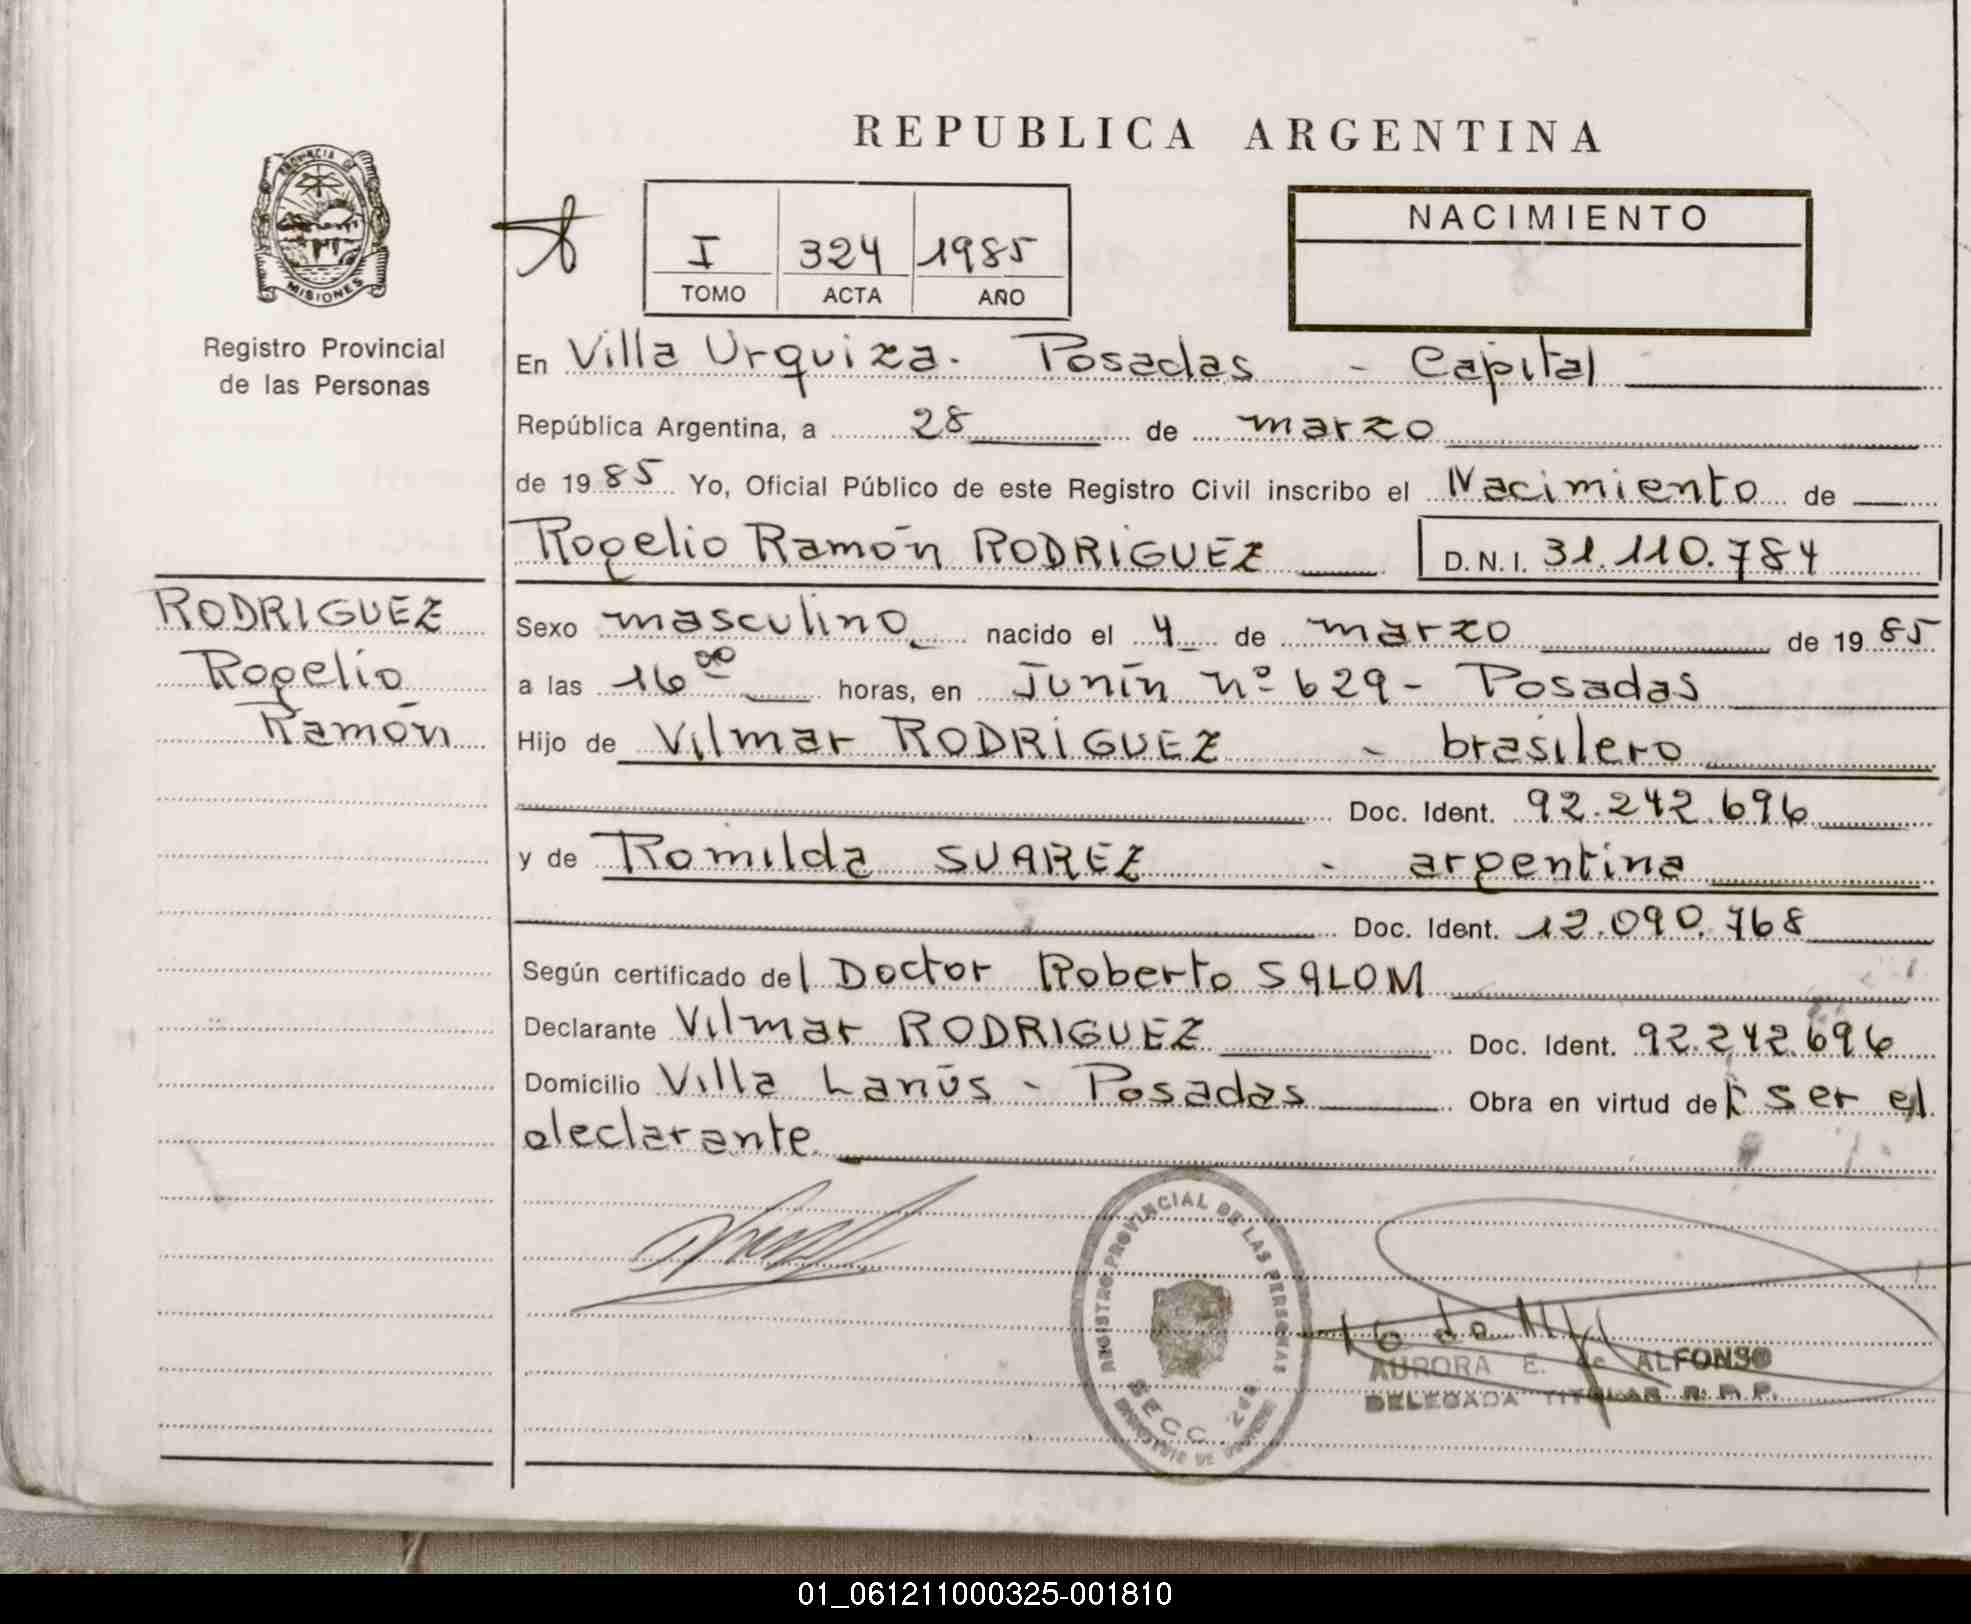 REPUBLICA ARGENTINA
PROVINCIA DE
MISIONES
Registro Provincial
de las Personas
I 324 1985
TOMO ACTA AÑO
NACIMIENTO
En Villa Urquiza. Posadas - Capital
República Argentina, a 28 de marzo
de 1985 Yo, Oficial Público de este Registro Civil inscribo el Nacimiento de
Rogelio Ramón RODRIGUEZ D.N.I. 31.110.784
RODRIGUEZ
Rogelio
Ramón
Sexo masculino nacido el 4 de marzo de 1985
a las 16 00 horas, en Junín nº 629 - Posadas
Hijo de Vilmar RODRIGUEZ - brasilero
Doc. Ident. 92.242.696
y de Romilda SUAREZ - argentina
Doc. Ident. 12.090.768
Según certificado del Doctor Roberto SALOM
Declarante Vilmar RODRIGUEZ Doc. Ident. 92.242.696
Domicilio Villa Lanús - Posadas Obra en virtud de ser el
declarante
REGISTRO PROVINCIAL DE LAS PERSONAS
SECC.
AURORA E. de ALFONSO
DELEGADA TITULAR R.P.P.
01_061211000325-001810